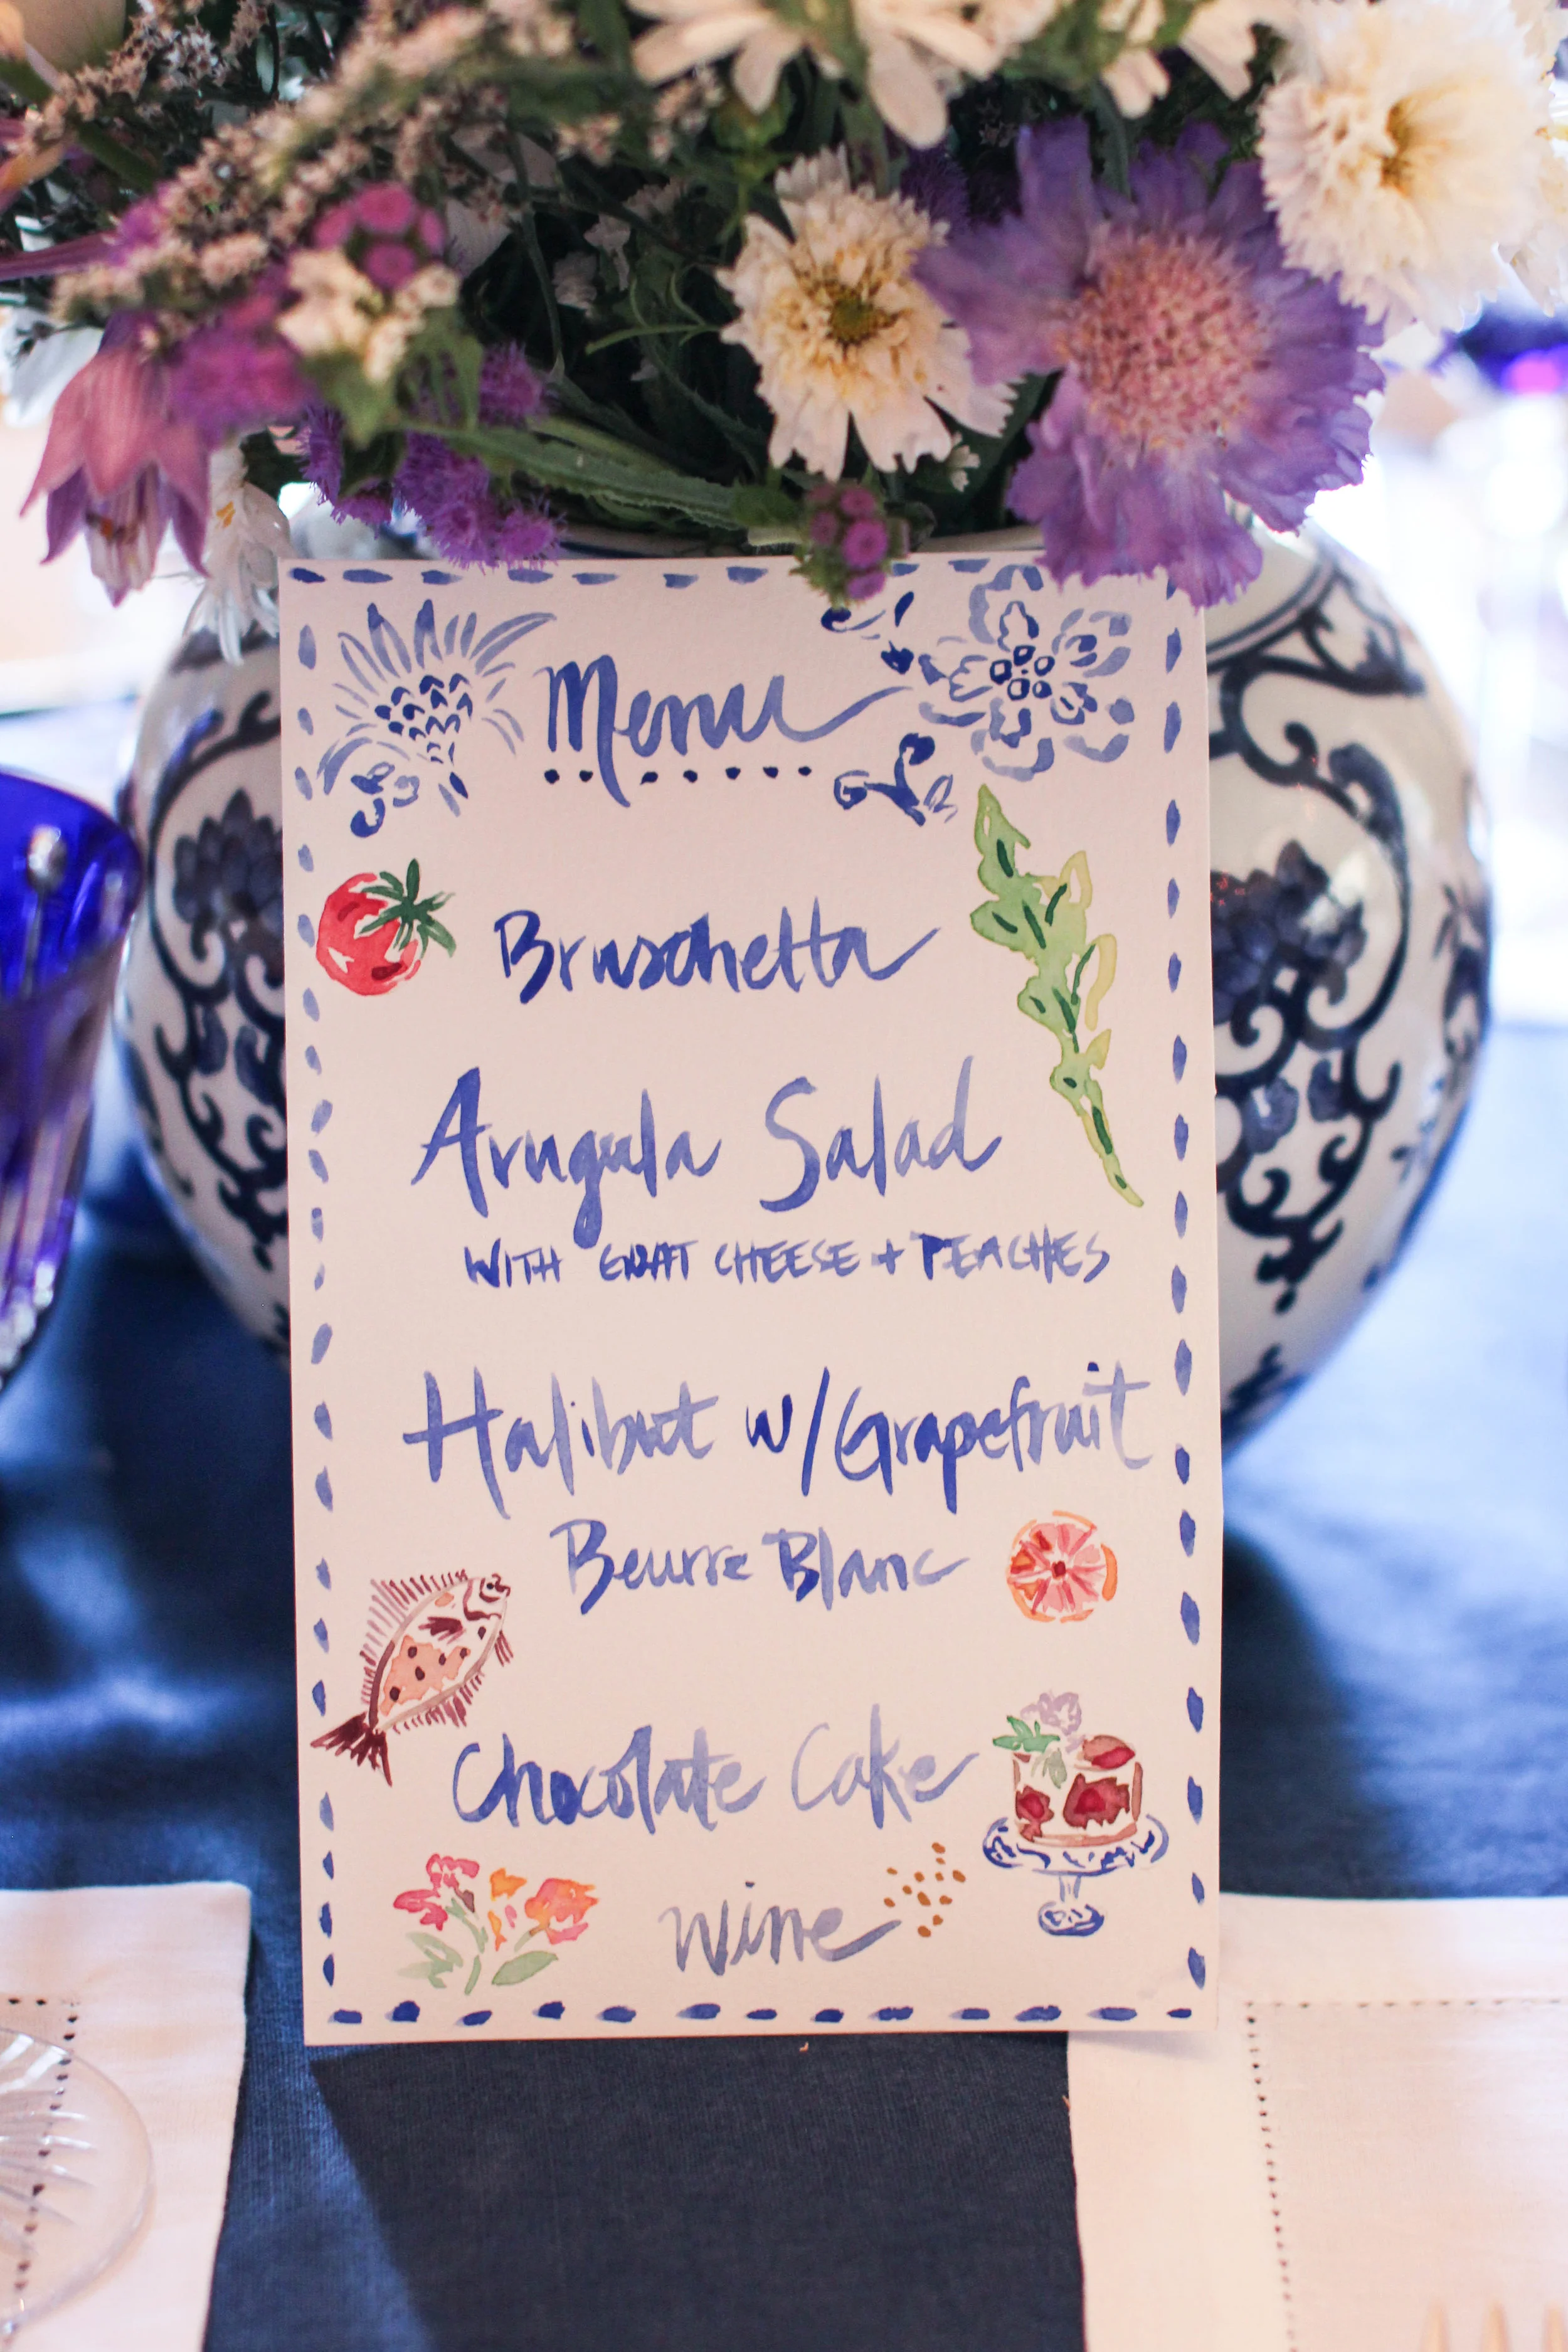 Menu
Bruschetta
Arugula Salad
WITH GOAT CHEESE + PEACHES
Halibut w/Grapefruit
Beurre Blanc
Chocolate Cake
wine